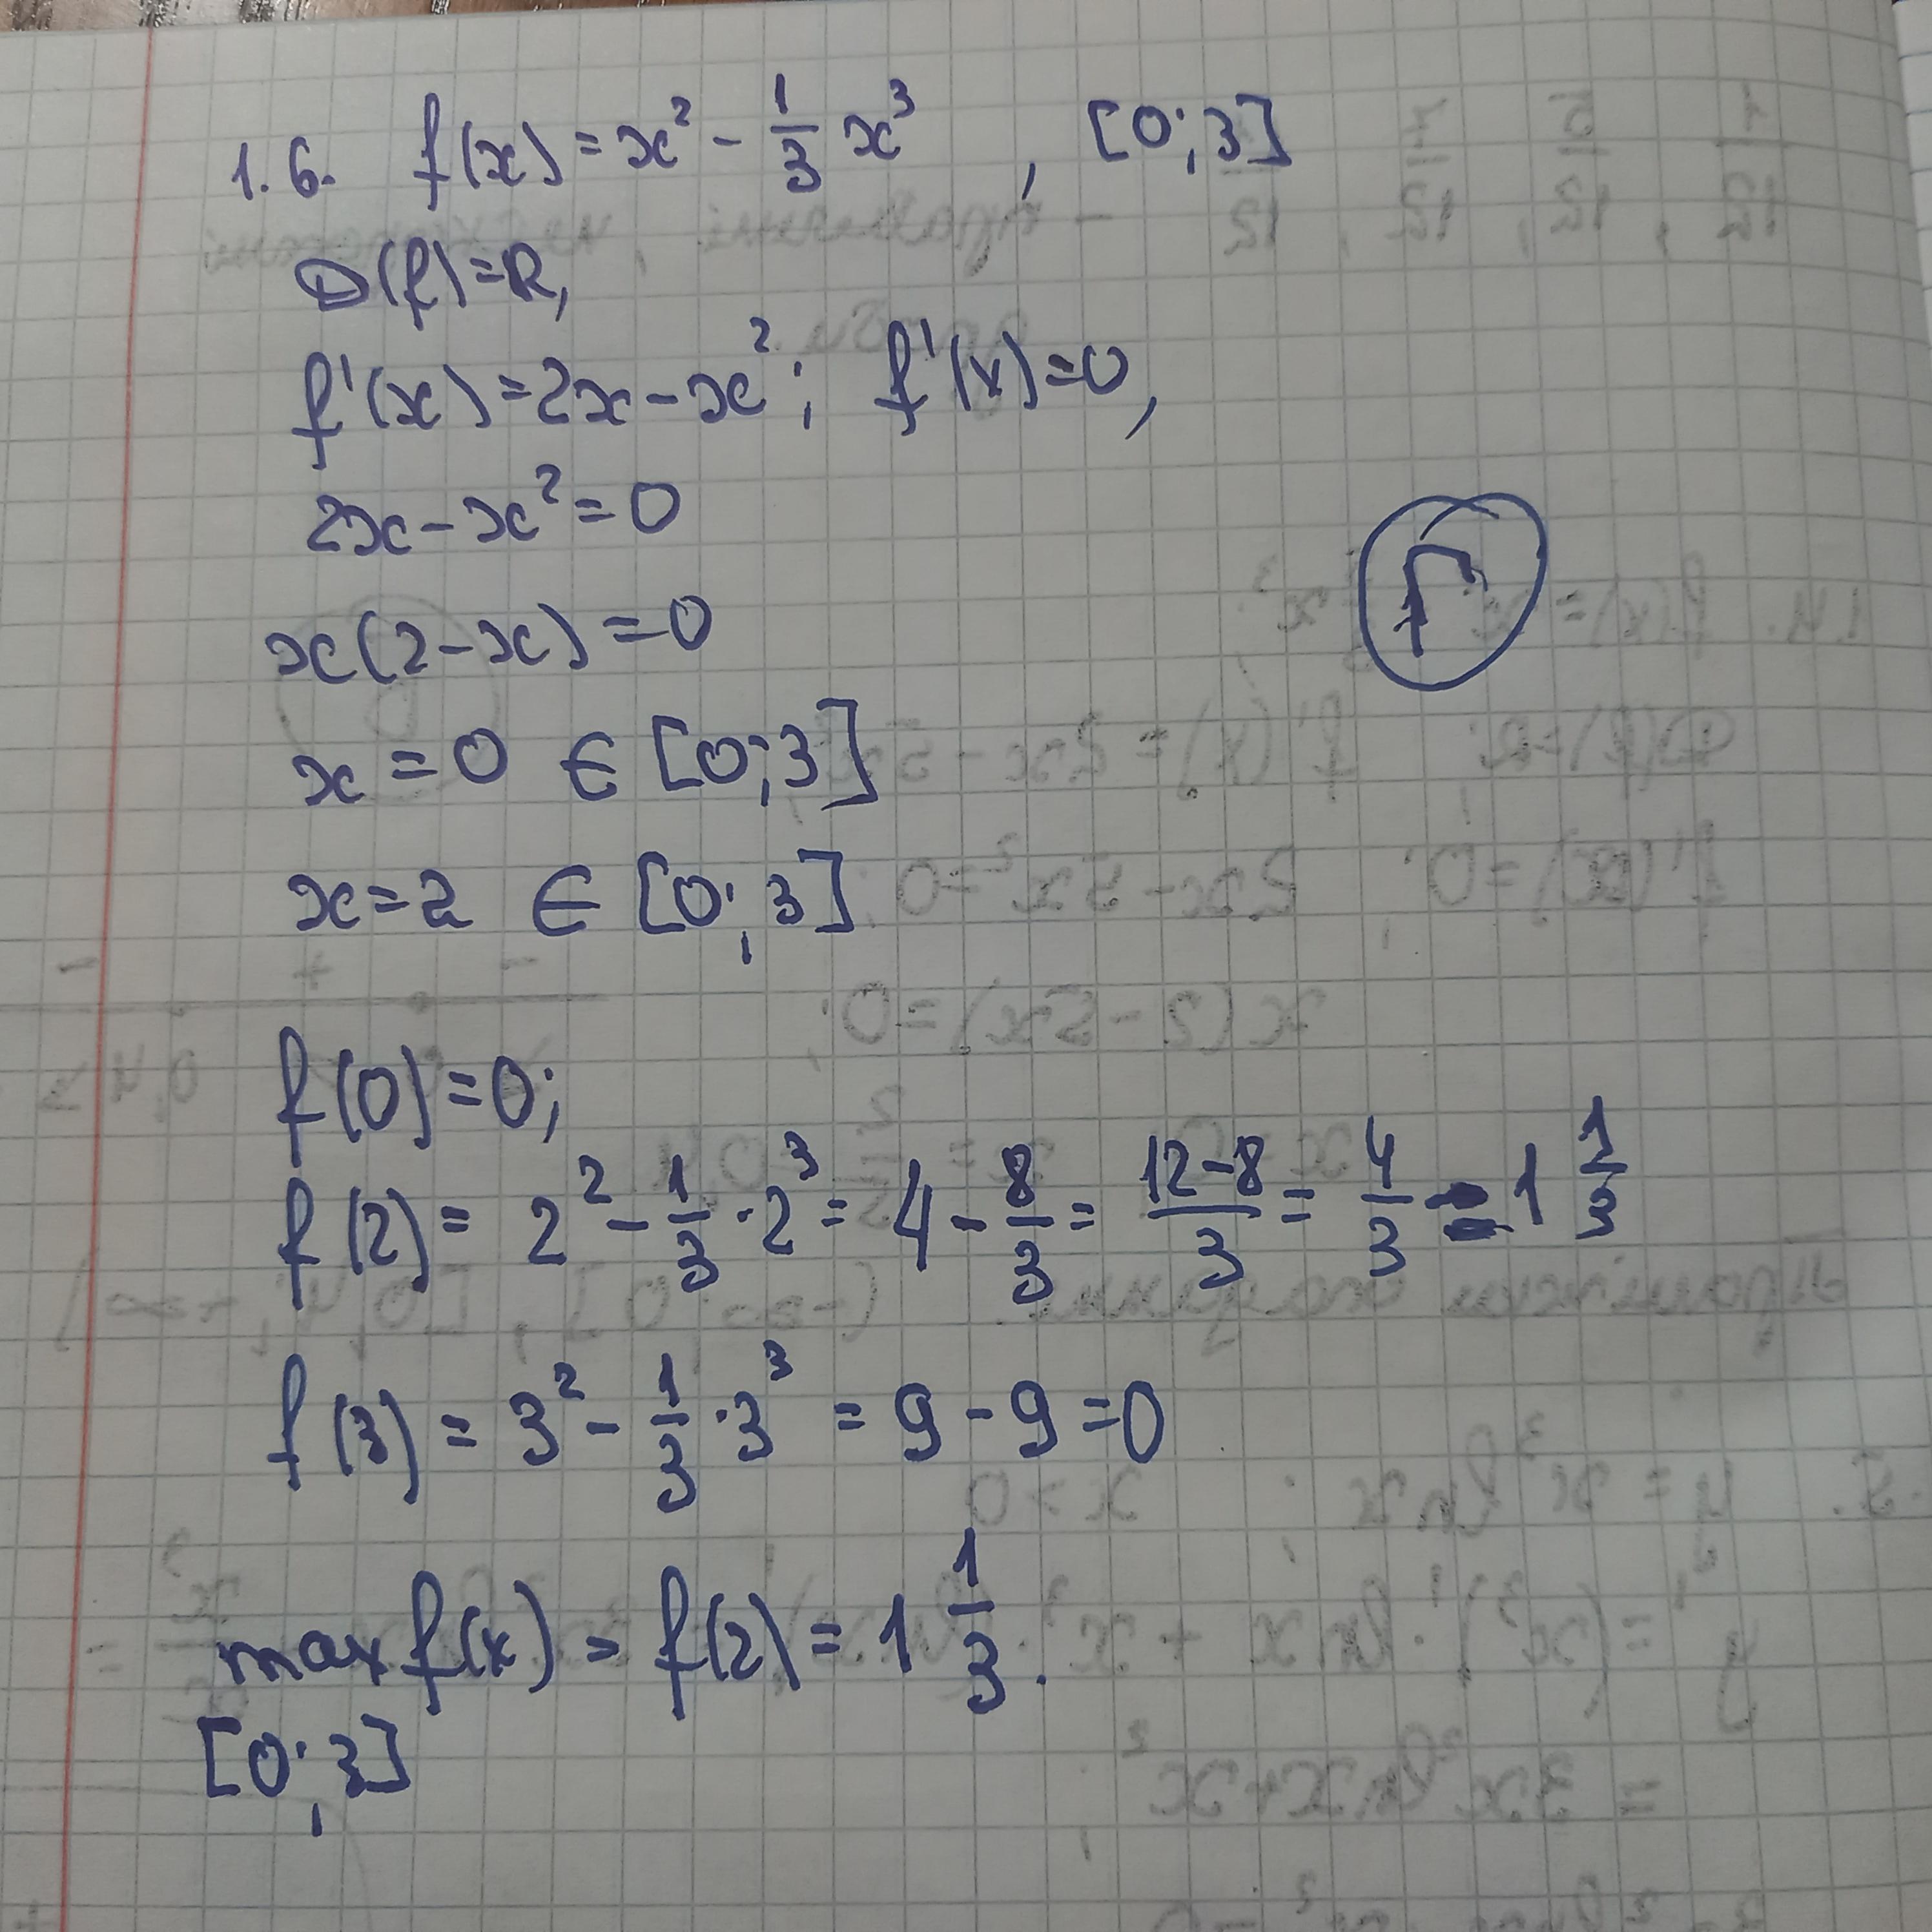 1.6. f(x) = x² - 1/3 x³, [0; 3]
D(f) = R,
f'(x) = 2x - x²; f'(x) = 0,
2x - x² = 0
Г
x(2 - x) = 0
x = 0 ∈ [0; 3]
x = 2 ∈ [0; 3]
f(0) = 0;
f(2) = 2² - 1/3 · 2³ = 4 - 8/3 = (12-8)/3 = 4/3 = 1 1/3
f(3) = 3² - 1/3 · 3³ = 9 - 9 = 0
max f(x) = f(2) = 1 1/3.
[0; 3]